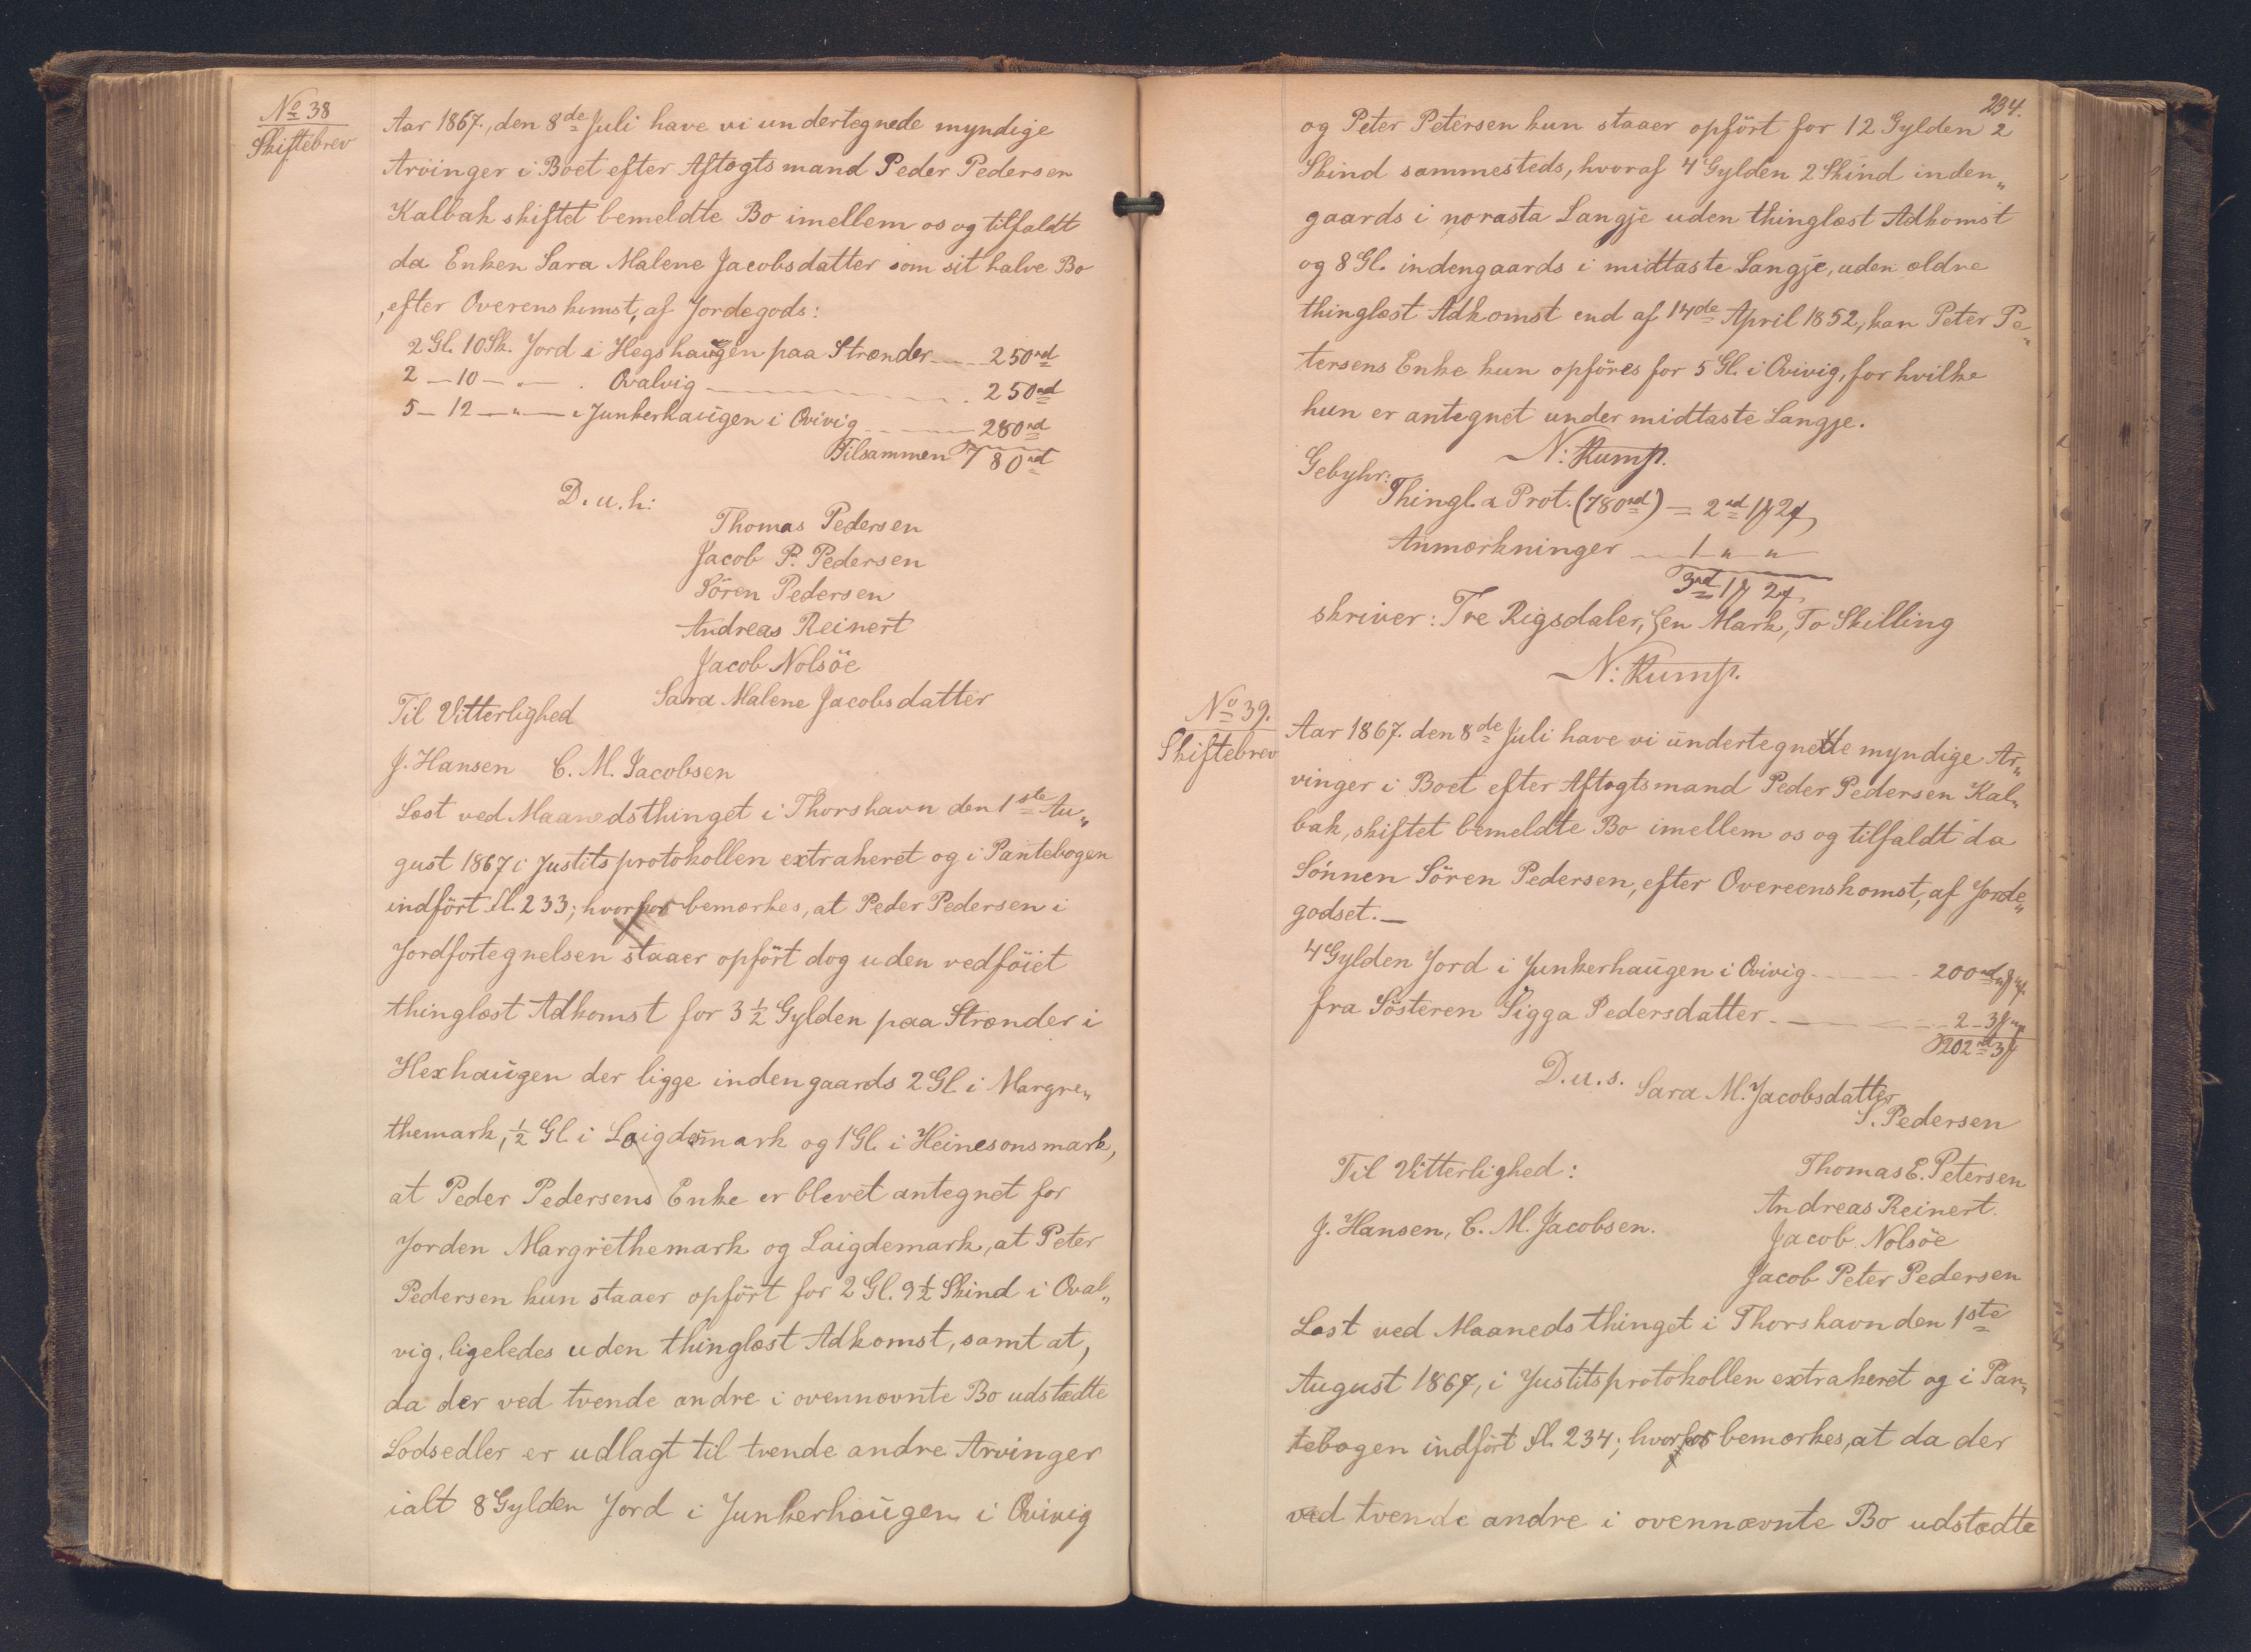 No 38
Skiftebrev
Aar 1867, den 8de Juli have vi undertegnede myndige
Arvinger i Boet efter Aftægtsmand Peder Pedersen
Kalbak skiftet bemeldte Bo imellem os og tilfaldt
da Enken Sara Malene Jacobsdatter som sit halve Bo
, efter Overenskomst, af Jordegods:
2 Gl. 10 Sk. Jord i Hegshaugen paa Strænder 250 rd
2 - 10 - " - . Qvalvig 250 rd
5 - 12 - " - i Junkerhaugen i Qvivig 280 rd
Tilsammen 780 rd
D. u. h:
Thomas Pedersen
Jacob P. Pedersen
Sören Pedersen
Andreas Reinert
Jacob Nolsöe
Sara Malene Jacobsdatter
Til Vitterlighed
J. Hansen C. M. Jacobsen
Læst ved Maanedsthinget i Thorshavn den 1ste Au„
gust 1867 i Justitsprotokollen extraheret og i Pantebogen
indfört fl. 233; hvorhos bemærkes, at Peder Pedersen i
Jordfortegnelsen staaer opfört dog uden vedföiet
thinglæst Adkomst for 3 1/2 Gylden paa Strænder i
Hexhaugen der ligge indengaards 2 Gl. i Margre„
themark, 1/2 Gl. i Laigdemark og 1 Gl. i Heinesonsmark,
at Peder Pedersens Enke er blevet antegnet for
Jorden Margrethemark og Laigdemark, at Peter
Pedersen kun staaer opfört for 2 Gl. 9 1/2 Skind i Qval„
vig, ligeledes uden thinglæst Adkomst, samt at,
da der ved tvende andre i ovennævnte Bo udstædte
Lodsedler er udlagt til tvende andre Arvinger
ialt 8 Gylden Jord i Junkerhaugen i Qvivig
234.
og Peter Petersen kun staaer opfört for 12 Gylden 2
Skind sammesteds, hvoraf 4 Gylden 2 Skind inden„
gaards i norasta Langje uden thinglæst Adkomst
og 8 Gl. indengaards i midtaste Langje, uden ældre
thinglæst Adkomst end af 14de April 1852, kan Peter Pe„
tersens Enke kun opföres for 5 Gl. i Qvivig, for hvilke
hun er antegnet under midtaste Langje.
N: Rump.
Gebyhr:
Thingl. a Prot. (780 rd) = 2 rd 1 ℳ 2 ß
Anmærkninger 1 " "
3 rd 1 ℳ 2 ß
skriver: Tre Rigsdaler, Een Mark, To Skilling
N: Rump.
No 39.
Skiftebrev
Aar 1867. den 8de Juli have vi undertegnede myndige Ar„
vinger i Boet efter Aftægtsmand Peder Pedersen Kal„
bak, skiftet bemeldte Bo imellem os og tilfaldt da
Sönnen Sören Pedersen, efter Overeenskomst, af Jorde„
godset. —
4 Gylden Jord i Junkerhaugen i Qvivig 200 rd " ℳ " ß
fra Sösteren Sigga Pedersdatter 2 - 3 ℳ " ß
202 rd 3 ℳ
D. u. s. Sara M. Jacobsdatter
S. Pedersen
Til Vitterlighed:
Thomas E. Petersen
Andreas Reinert.
J. Hansen, C. M. Jacobsen.
Jacob Nolsöe
Jacob Peter Pedersen
Læst ved Maanedsthinget i Thorshavn den 1ste
August 1867, i Justitsprotokollen extraheret og i Pan„
tebogen indfört fl. 234; hvorhos bemærkes, at da der
ved tvende andre i ovennævnte Bo udstædte